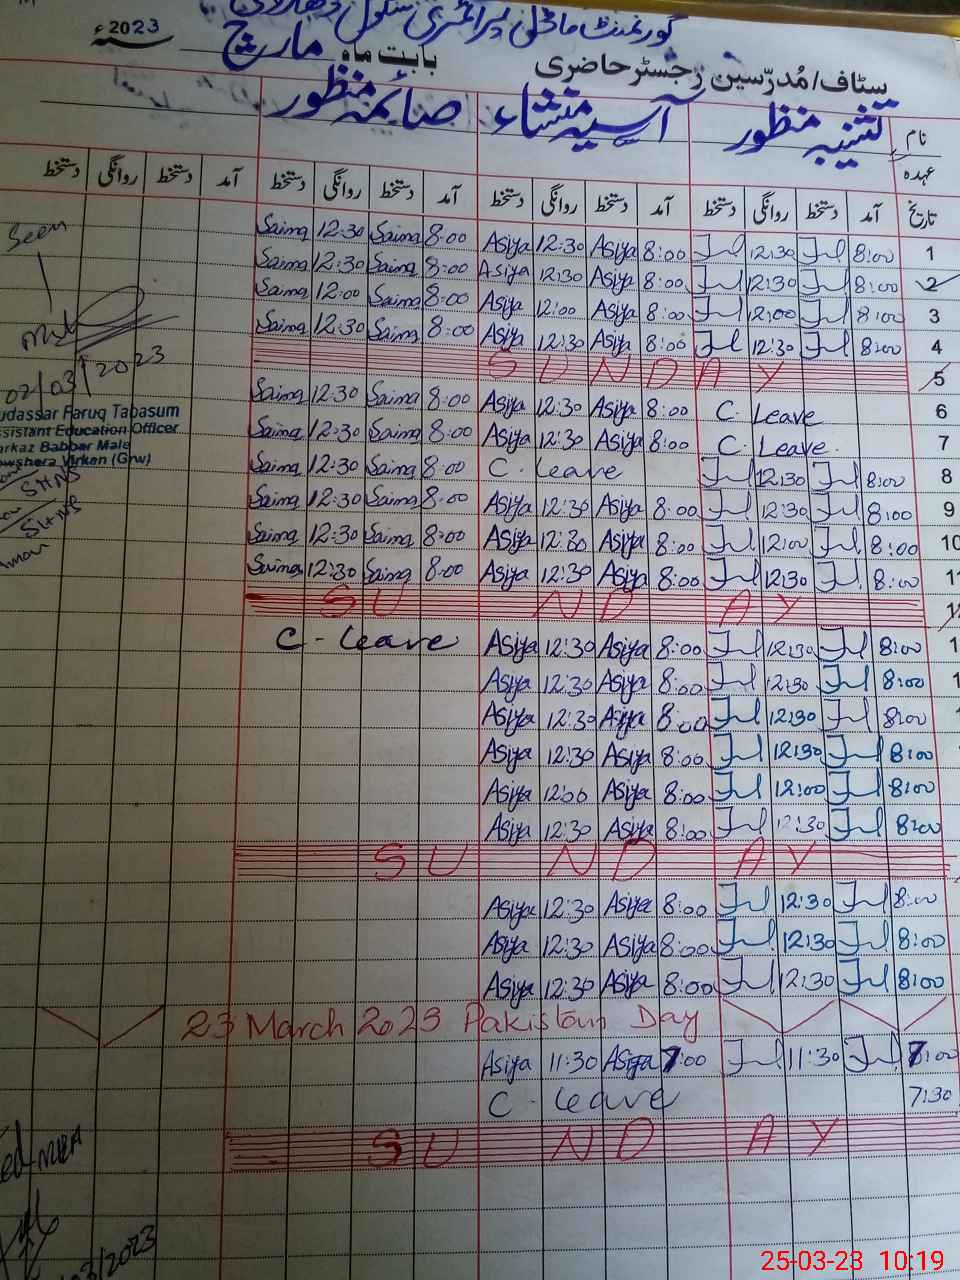 گورنمنٹ ماڈل پرائمری سکول
سٹاف/مُدرّسین رجسٹر حاضری بابت ماہ مارچ 2023ء
نام منظور آسیہ منشاء صائمہ منظور
عہدہ
تاریخ آمد دستخط روانگی دستخط آمد دستخط روانگی دستخط آمد دستخط روانگی دستخط آمد دستخط روانگی دستخط
Saima 12:30 Saima 8:00 Asiya 12:30 Asiya 8:00 12:30 8:00 1
Saima 12:30 Saima 8:00 Asiya 12:30 Asiya 8:00 12:30 8:00 2
Saima 12:00 Saima 8:00 Asiya 12:00 Asiya 8:00 12:00 8:00 3
Saima 12:30 Saima 8:00 Asiya 12:30 Asiya 8:00 12:30 8:00 4
SUNDAY 5
Saima 12:30 Saima 8:00 Asiya 12:30 Asiya 8:00 C. Leave 6
Saima 12:30 Saima 8:00 Asiya 12:30 Asiya 8:00 C. Leave 7
Saima 12:30 Saima 8:00 C. Leave 12:30 8:00 8
Saima 12:30 Saima 8:00 Asiya 12:30 Asiya 8:00 12:30 8:00 9
Saima 12:30 Saima 8:00 Asiya 12:30 Asiya 8:00 12:00 8:00 10
Saima 12:30 Saima 8:00 Asiya 12:30 Asiya 8:00 12:30 8:00
SUNDAY
C - Leave Asiya 12:30 Asiya 8:00 12:30 8:00
Asiya 12:30 Asiya 8:00 12:30 8:00
Asiya 12:30 Asiya 8:00 12:30 8:00
Asiya 12:30 Asiya 8:00 12:30 8:00
Asiya 12:00 Asiya 8:00 12:00 8:00
Asiya 12:30 Asiya 8:00 12:30 8:00
SUNDAY
Asiya 12:30 Asiya 8:00 12:30 8:00
Asiya 12:30 Asiya 8:00 12:30 8:00
Asiya 12:30 Asiya 8:00 12:30 8:00
23 March 2023 Pakistan Day
Asiya 11:30 Asiya 7:00 11:30 7:00
C - Leave 7:30
SUNDAY
Seen
02/03/2023
udassar Faruq Tabasum
ssistant Education Officer
arkaz Babbar Male
owshera Virkan (Grw)
3/2023
25-03-23 10:19